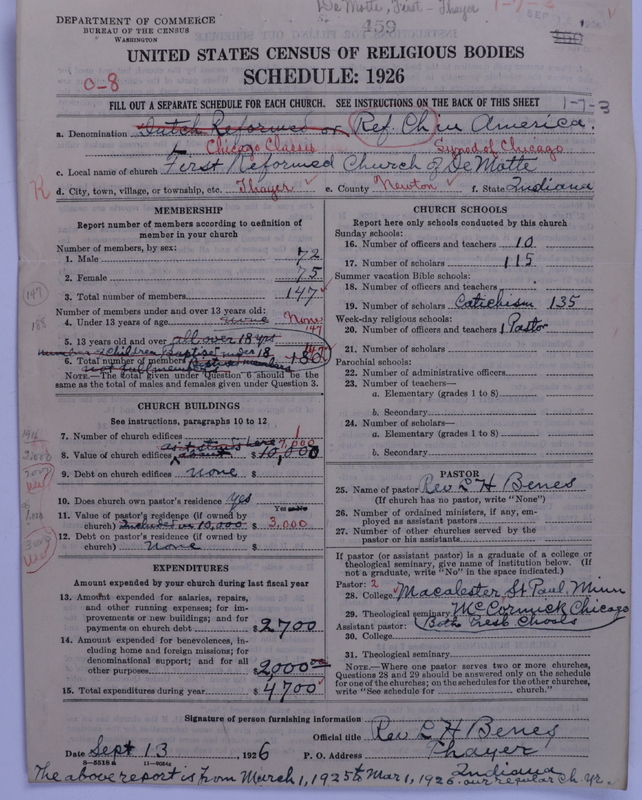 DeMotte, First - Thayer
1-7-3
159
DEPARTMENT OF COMMERCE
BUREAU OF THE CENSUS
WASHINGTON
UNITED STATES CENSUS OF RELIGIOUS BODIES
SCHEDULE: 1926
0-8
FILL OUT A SEPARATE SCHEDULE FOR EACH CHURCH. SEE INSTRUCTIONS ON THE BACK OF THIS SHEET
1-7-3
a. Denomination Dutch Reformed or Ref. Ch in America.
Chicago Classis Synod of Chicago
c. Local name of church First Reformed Church of DeMotte
d. City, town, village, or township, etc. Thayer e. County Newton f. State Indiana
MEMBERSHIP
Report number of members according to definition of member in your church
Number of members, by sex:
1. Male 72
2. Female 75
3. Total number of members 147
147
Number of members under and over 13 years old:
4. Under 13 years of age none None
147
5. 13 years old and over all over 18 yrs
number children Baptise under 18
6. Total number of members 180
not full members
NOTE.—The total given under Question 6 should be the
same as the total of males and females given under Question 3.
CHURCH BUILDINGS
See instructions, paragraphs 10 to 12
7. Number of church edifices 1
7,000
8. Value of church edifices $ 10,000
9. Debt on church edifices none $
10. Does church own pastor's residence? Yes
Yes or No
11. Value of pastor's residence (if owned by
church) Included in 10,000 $ 3,000
12. Debt on pastor's residence (if owned by
church) none $
EXPENDITURES
Amount expended by your church during last fiscal year
13. Amount expended for salaries, repairs,
and other running expenses; for im-
provements or new buildings; and for
payments on church debt $ 2700
14. Amount expended for benevolences, in-
cluding home and foreign missions; for
denominational support; and for all
other purposes 2000.00
15. Total expenditures during year $ 4700
CHURCH SCHOOLS
Report here only schools conducted by this church
Sunday schools:
16. Number of officers and teachers 10
17. Number of scholars 115
Summer vacation Bible schools:
18. Number of officers and teachers
19. Number of scholars Catechism 135
Week-day religious schools:
20. Number of officers and teachers 1 Pastor
21. Number of scholars
Parochial schools:
22. Number of administrative officers
23. Number of teachers—
a. Elementary (grades 1 to 8)
b. Secondary
24. Number of scholars—
a. Elementary (grades 1 to 8)
b. Secondary
PASTOR
25. Name of pastor Rev L H Benes
(If church has no pastor, write "None")
26. Number of ordained ministers, if any, em-
ployed as assistant pastors
27. Number of other churches served by the
pastor or his assistants
If pastor (or assistant pastor) is a graduate of a college or
theological seminary, give name of institution below. (If
not a graduate, write "No" in the space indicated.)
Pastor: 2
28. College Macalester, St Paul, Minn
29. Theological seminary McCormick Chicago
Assistant pastor: Both Presb Schools
30. College
31. Theological seminary
NOTE.—Where one pastor serves two or more churches,
Questions 28 and 29 should be answered only on the schedule
for one of the churches; on the schedules for the other churches,
write "See schedule for church."
Signature of person furnishing information Rev L H Benes
Official title
Date Sept 13, 1926 P. O. Address Thayer
Indiana
8-5518a 11-9024a
The above report is from March 1, 1925 to Mar 1, 1926. our regular Ch. Yr.